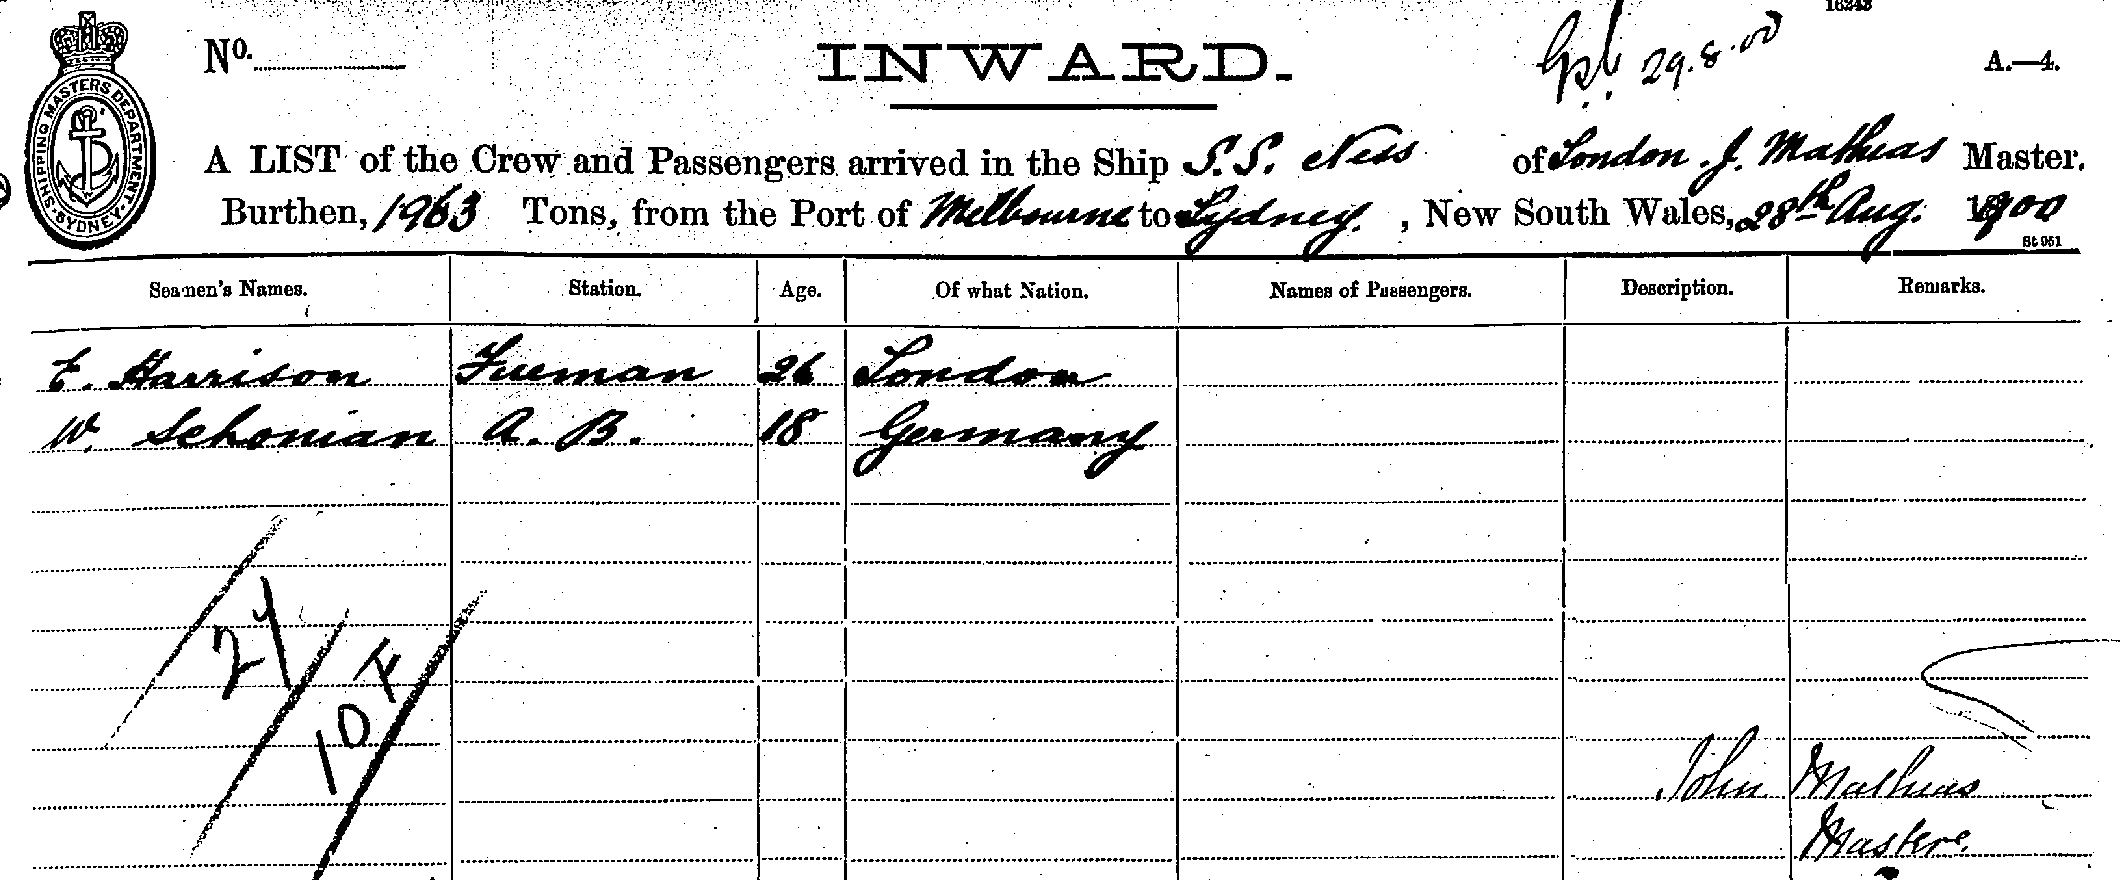 16243
No.
INWARD.
29.8.00
A.—4.
SHIPPING MASTERS DEPARTMENT. SYDNEY.
A LIST of the Crew and Passengers arrived in the Ship S.S. Ness of London. J. Mathias Master.
Burthen, 1963 Tons, from the Port of Melbourne to Sydney. , New South Wales, 28th Aug. 1900
St 951
Seamen's Names. Station. Age. Of what Nation. Names of Passengers. Description. Remarks.
E. Harrison Fireman 26 London
W. Schonian A. B. 18 Germany
24
10 F
John Mathias
Master.